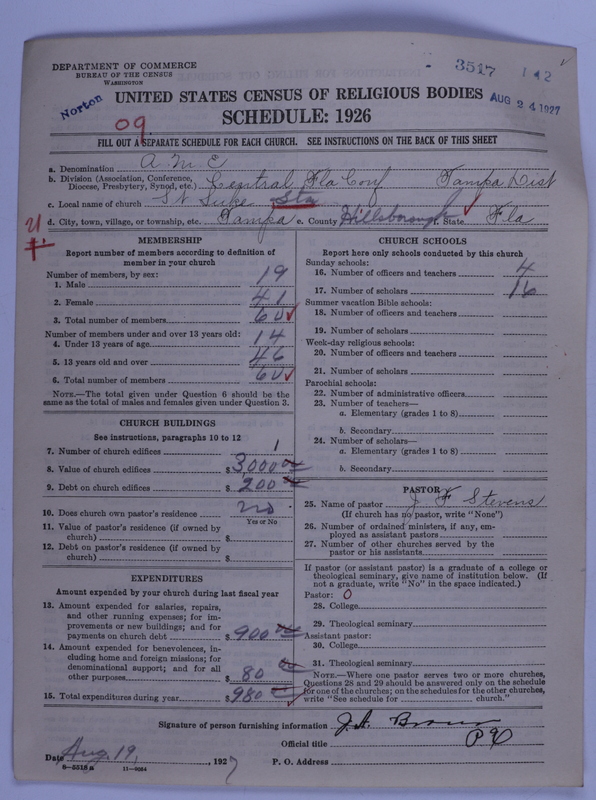 DEPARTMENT OF COMMERCE
BUREAU OF THE CENSUS
WASHINGTON
3517 142
Norton
UNITED STATES CENSUS OF RELIGIOUS BODIES
AUG 24 1927
SCHEDULE: 1926
09
FILL OUT A SEPARATE SCHEDULE FOR EACH CHURCH. SEE INSTRUCTIONS ON THE BACK OF THIS SHEET
a. Denomination A M E
b. Division (Association, Conference, Diocese, Presbytery, Synod, etc.) Central Fla Conf Tampa Dist
c. Local name of church St Luke Sta
d. City, town, village, or township, etc. Tampa e. County Hillsborough f. State Fla
MEMBERSHIP
Report number of members according to definition of member in your church
Number of members, by sex:
1. Male 19
2. Female 41
3. Total number of members 60
Number of members under and over 13 years old:
4. Under 13 years of age 14
5. 13 years old and over 46
6. Total number of members 60
NOTE.—The total given under Question 6 should be the same as the total of males and females given under Question 3.
CHURCH BUILDINGS
See instructions, paragraphs 10 to 12
7. Number of church edifices 1
8. Value of church edifices $3,000 00
9. Debt on church edifices $200 00
10. Does church own pastor's residence no
Yes or No
11. Value of pastor's residence (if owned by church) $
12. Debt on pastor's residence (if owned by church) $
EXPENDITURES
Amount expended by your church during last fiscal year
13. Amount expended for salaries, repairs, and other running expenses; for improvements or new buildings; and for payments on church debt $900 00
14. Amount expended for benevolences, including home and foreign missions; for denominational support; and for all other purposes $80 00
15. Total expenditures during year $980 00
CHURCH SCHOOLS
Report here only schools conducted by this church
Sunday schools:
16. Number of officers and teachers 4
17. Number of scholars 16
Summer vacation Bible schools:
18. Number of officers and teachers
19. Number of scholars
Week-day religious schools:
20. Number of officers and teachers
21. Number of scholars
Parochial schools:
22. Number of administrative officers
23. Number of teachers—
a. Elementary (grades 1 to 8)
b. Secondary
24. Number of scholars—
a. Elementary (grades 1 to 8)
b. Secondary
PASTOR
25. Name of pastor J F Stevens
(If church has no pastor, write "None")
26. Number of ordained ministers, if any, employed as assistant pastors
27. Number of other churches served by the pastor or his assistants
If pastor (or assistant pastor) is a graduate of a college or theological seminary, give name of institution below. (If not a graduate, write "No" in the space indicated.)
Pastor: 0
28. College
29. Theological seminary
Assistant pastor:
30. College
31. Theological seminary
NOTE.—Where one pastor serves two or more churches, Questions 28 and 29 should be answered only on the schedule for one of the churches; on the schedules for the other churches, write "See schedule for church."
Signature of person furnishing information
Official title
Date Aug. 19, 1927
P. O. Address
8—5518a 11—8864